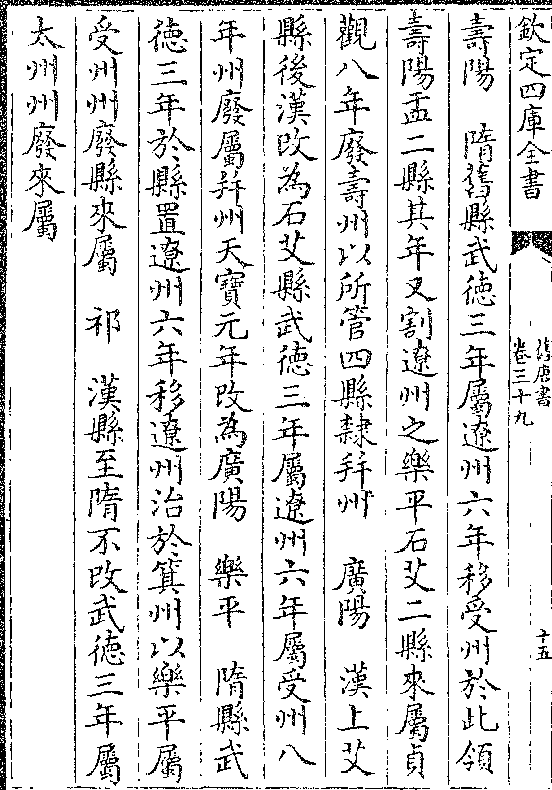 欽定四庫全書
舊唐書
卷三十九
十五
壽陽　隋舊縣武徳三年屬遼州六年移受州於此領
壽陽盂二縣其年又割遼州之樂平石艾二縣來屬貞
觀八年廢壽州以所管四縣隸并州　廣陽　漢上艾
縣後漢改為石艾縣武徳三年屬遼州六年屬受州八
年州廢屬并州天寶元年改為廣陽　樂平　隋縣武
徳三年於縣置遼州六年移遼州治於箕州以樂平屬
受州州廢縣來屬　祁　漢縣至隋不改武徳三年屬
太州州廢來屬